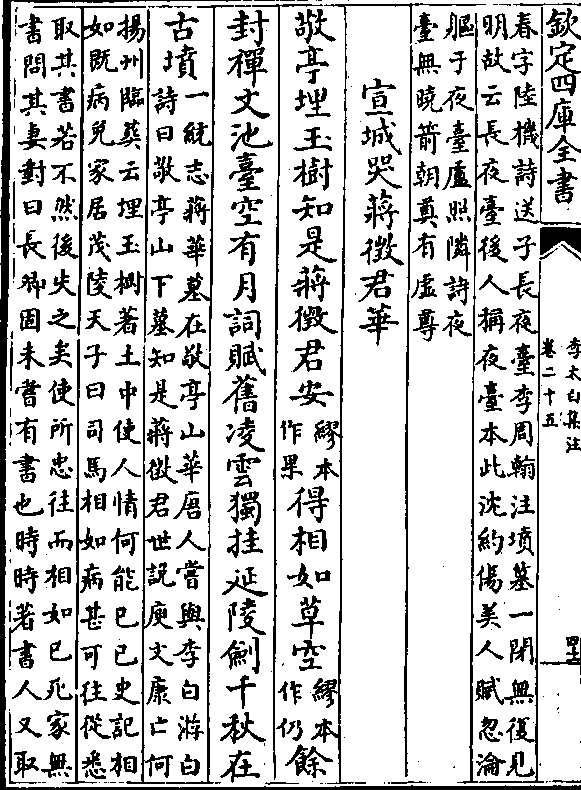 欽定四庫全書
李太白集注
卷二十五
四十一
春字陸機詩送子長夜臺李周翰注墳墓一閉無復見
明故云長夜臺後人稱夜臺本此沈約傷美人賦忽淪
軀于夜臺盧照隣詩夜
臺無曉箭朝奠有虚尊
宣城哭蔣徴君華
敬亭埋玉樹知是蔣徴君安繆本作果得相如草空繆本作仍餘
封禪文池臺空有月詞賦舊凌雲獨挂延陵劍千秋在
古墳一統志蔣華墓在敬亭山華唐人嘗與李白游白
詩曰敬亭山下墓知是蔣徴君世説庾文康亡何
揚州臨葬云埋玉樹著土中使人情何能已已史記相
如既病免家居茂陵天子曰司馬相如病甚可往從悉
取其書若不然後失之矣使所忠往而相如已死家無
書問其妻對曰長卿固未嘗有書也時時著書人又取